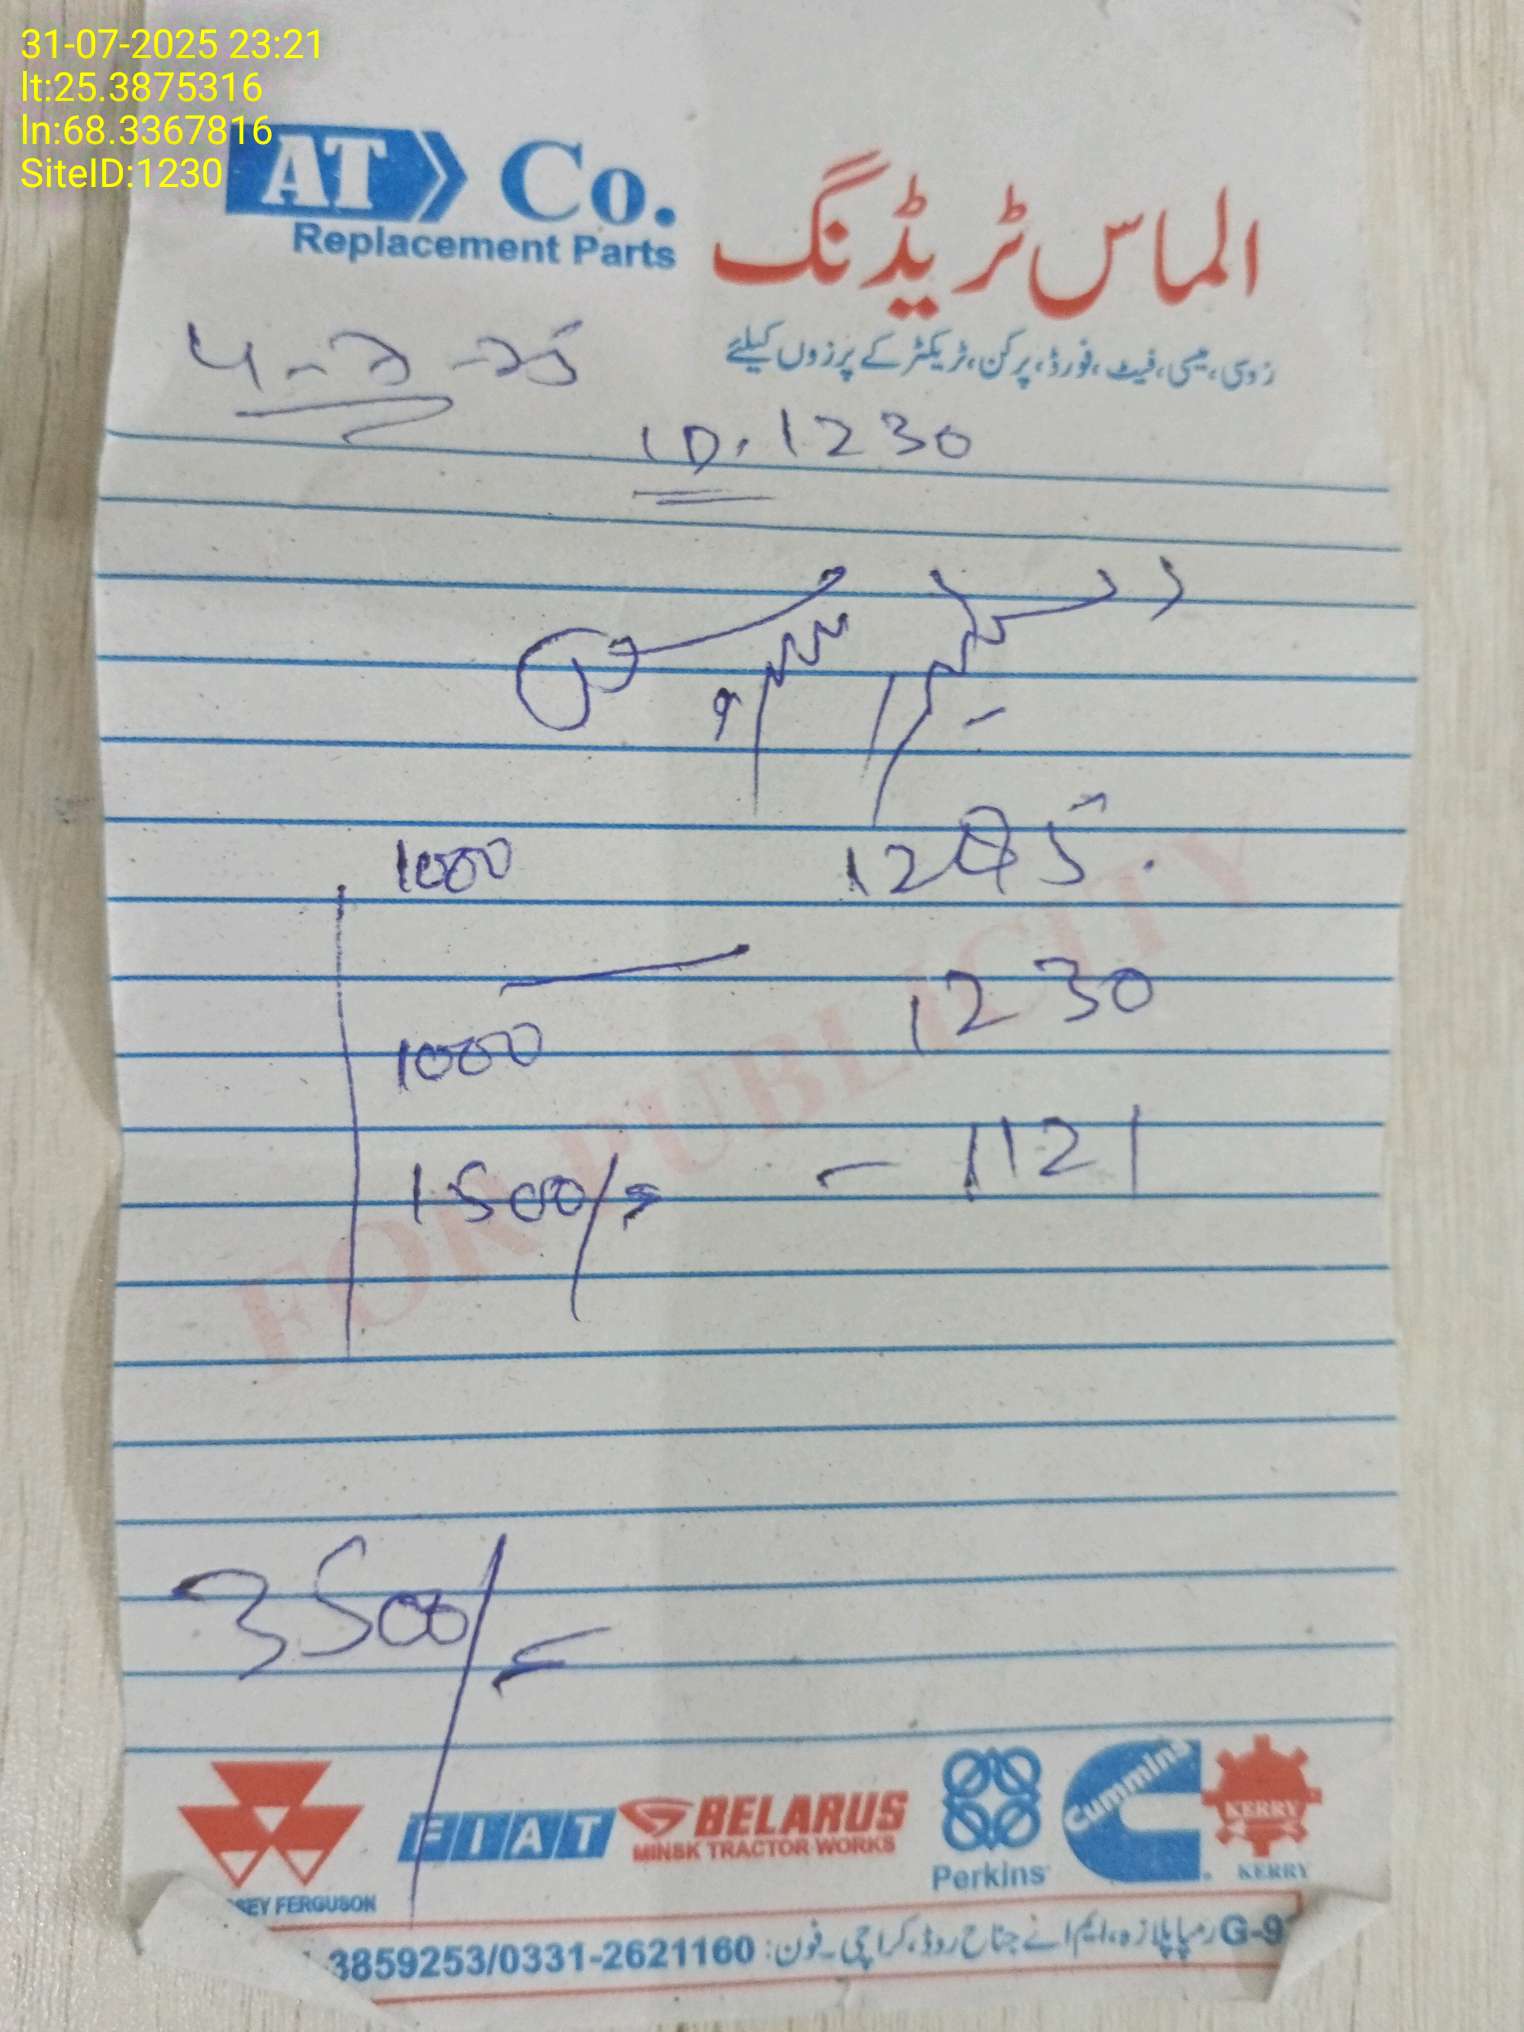 31-07-2025 23:21
lt:25.3875316
ln:68.3367816
SiteID:1230
AT Co.
Replacement Parts
الماس ٹریڈنگ
روسی، میسی، فیٹ، فورڈ، پرکن، ٹریکٹر کے پرزوں کیلئے
4-7-25
ID. 1230
1000 1245.
1000 1230
1500/= - 1121
FOR PUBLICITY
3500/=
SEY FERGUSON
FIAT
BELARUS
MINSK TRACTOR WORKS
Perkins
Cummins
KERRY
KERRY
G-9 رمپا پلازہ، ایم اے جناح روڈ، کراچی۔ فون: 3859253/0331-2621160